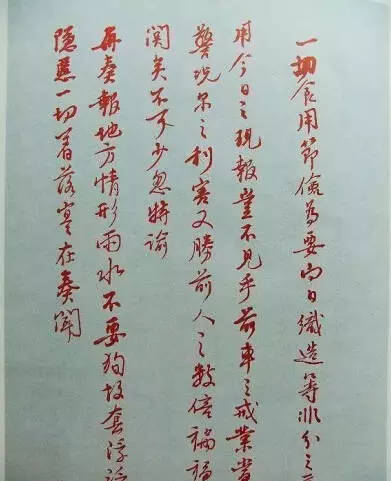 一切食用節儉為要向日織造等非分之
用今日之現報豈不見乎前車之戒業當
警況尔之利害又勝前人之数倍禍福
関矣不可少忽特諭
再奏報地方情形雨水不要狥故套浮
隱慝一切着落寔在奏聞